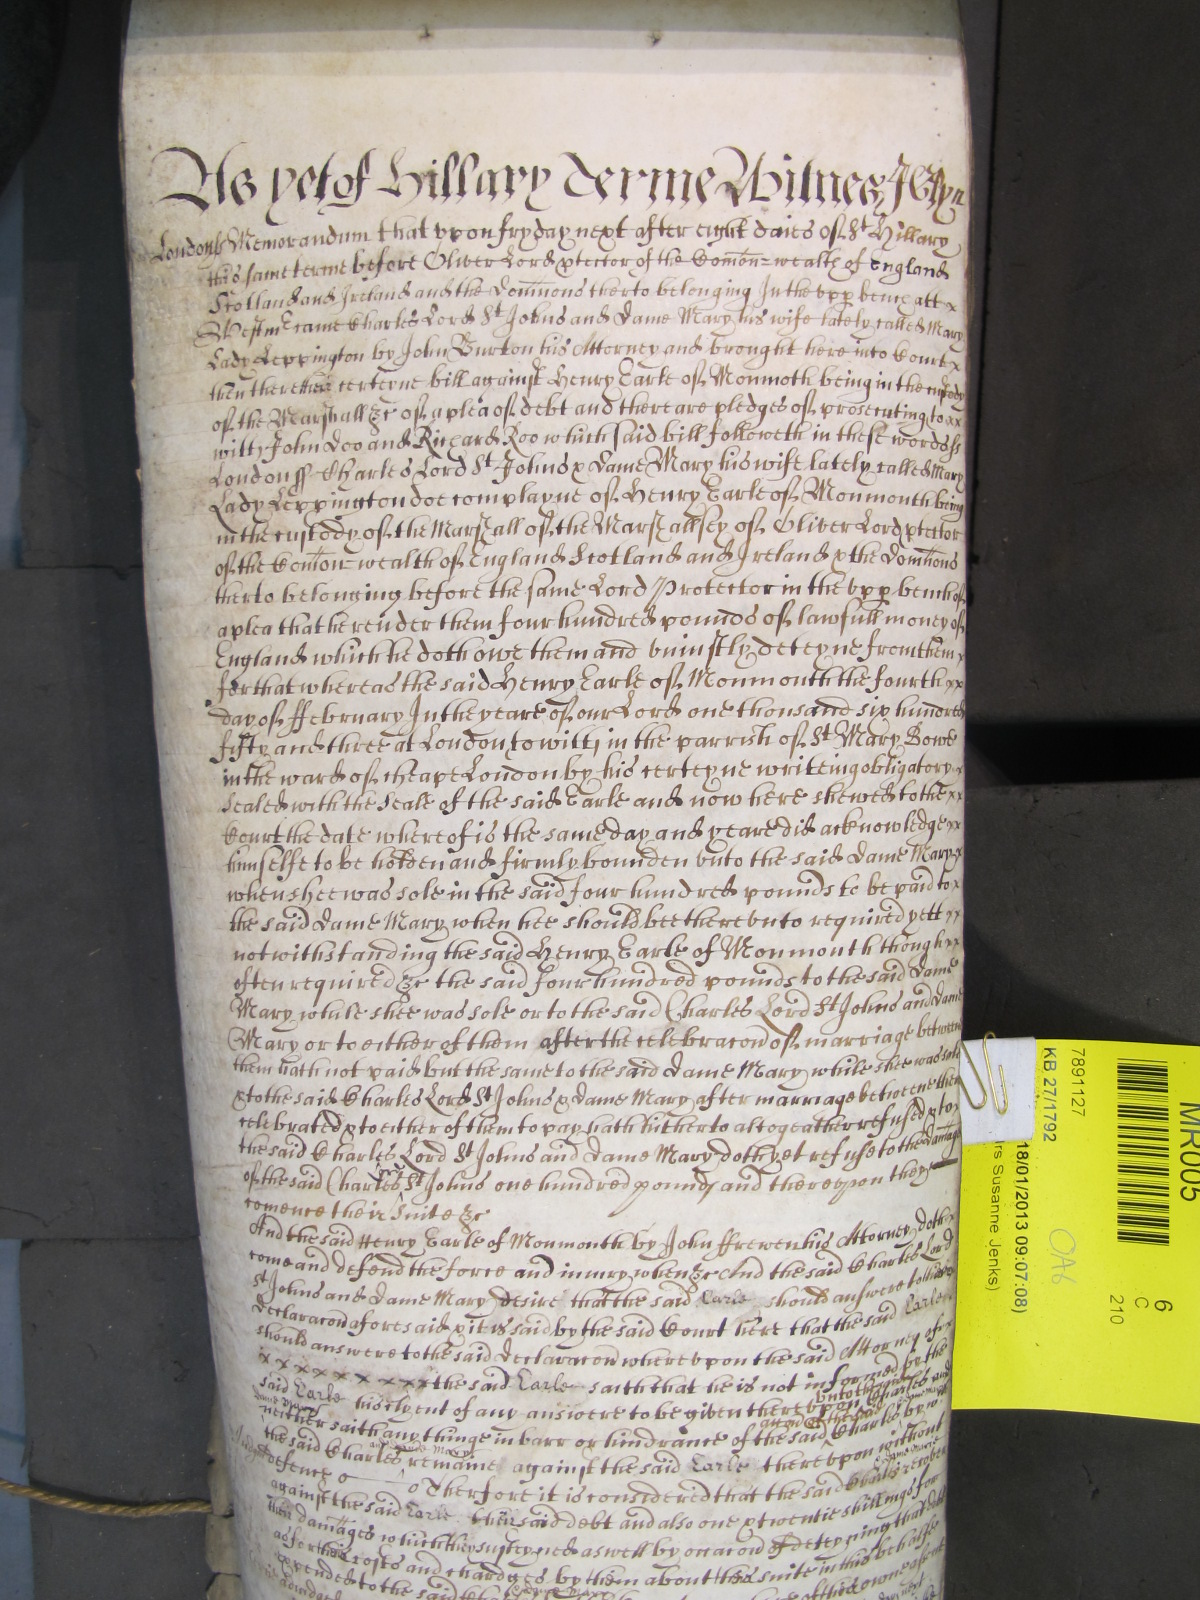 As yet of Hillary Terme Witnes J Glyn
London ss Memorandum that vpon fryday next after eight daies of St Hillary
this same terme before Oliver Lord ptector of the Comon=wealth of England
Scotland and Ireland and the Dominons therto belonging In the vpp bench att x
Westmr came Charles Lord St Johns and Dame Mary his wife lately called Mary
Lady Leppington by John Burton his Attorney and brought here into Court x
then there their certeyne bill against Henry Earle of Monmoth being in the custody
of the Marshall &c of a plea of debt and there are pledges of prosecuting to xx
witt John Doo and Richard Roo which said bill followeth in these words ss
London ss Charles Lord St Johns & Dame Mary his wife lately called Mary
Lady Leppington doe complayne of Henry Earle of Monmouth being
in the custody of the Marshall of the Marshallsey of Oliver Lord ptector
of the Comon=wealth of England Scotland and Ireland & the Dominons
therto belonging before the same Lord Protector in the vpp bench of
a plea that he render them four hundred pounds of lawfull money of
England which he doth owe them and vniustly deteyne from them x
for that whereas the said Henry Earle of Monmouth the fourth xx
day of ffebruary In the yeare of our Lord one thousand six hundred
fifty and three at London to witt in the parrish of St Mary Bowe
in the ward of Cheape London by his certeyne writeing obligatory x
Sealed with the Seale of the said Earle and now here shewed to the xx
Court the date whereof is the same day and yeare did acknowledge xx
himselfe to be holden and firmly bounden vnto the said Dame Mary x
when shee was sole in the said four hundred pounds to be paid to x
the said Dame Mary when hee should bee therevnto required yett xx
notwithstanding the said Henry Earle of Monmouth though xx
often required &c the said four hundred pounds to the said Dame
Mary while shee was sole or to the said Charles Lord St Johns and Dame
Mary or to either of them after the celebracon of marriage between
them hath not paid but the same to the said Dame Mary while shee was sole
& to the said Charles Lord St Johns & Dame Mary after marriage betweene them
celebrated & to either of them to pay hath hitherto altogeather refused & to x
the said Charles Lord St Johns and Dame Mary doth yet refuse to the damage
of the said Charles Lord St Johns one hundred pounds and therevpon they
comence their Suite &c
And the said Henry Earle of Monmouth by John ffrewen his Attorney doth x
come and defend the force and iniury when &c And the said Charles Lord
St Johns and Dame Mary desire that the said Earle should answere to their
declaracon aforesaid & it is said by the said Court here that the said Earle
should answere to the said declaracon wherevpon the said Attorney of x
x x x x x x x x x the said Earle saith that he is not informed by the
said Earle his clyent of any answere to be given therevpon vnto the said Charles and
Dame Mary neither saith any thinge in barr or hindrance of the said accon of the said Charles & Dame Mary by wch
the said Charles and Dame Mary remaine against the said Earle therevpon without
defence o o Therfore it is considered that the said Charles & Dame Mary recover
against the said Earle their said debt and also one & twentie shillings for
their damages which they susteyned as well by occacon of deteyning that debt
as for their costs and chardges by them about their suite in this behalfe
expended to the said Charles & Dame Mary of their owne assent
MR005
6
C
210
7891127
KB 27/1792
18/01/2013 09:07:08)
rs Susanne Jenks)
OA6